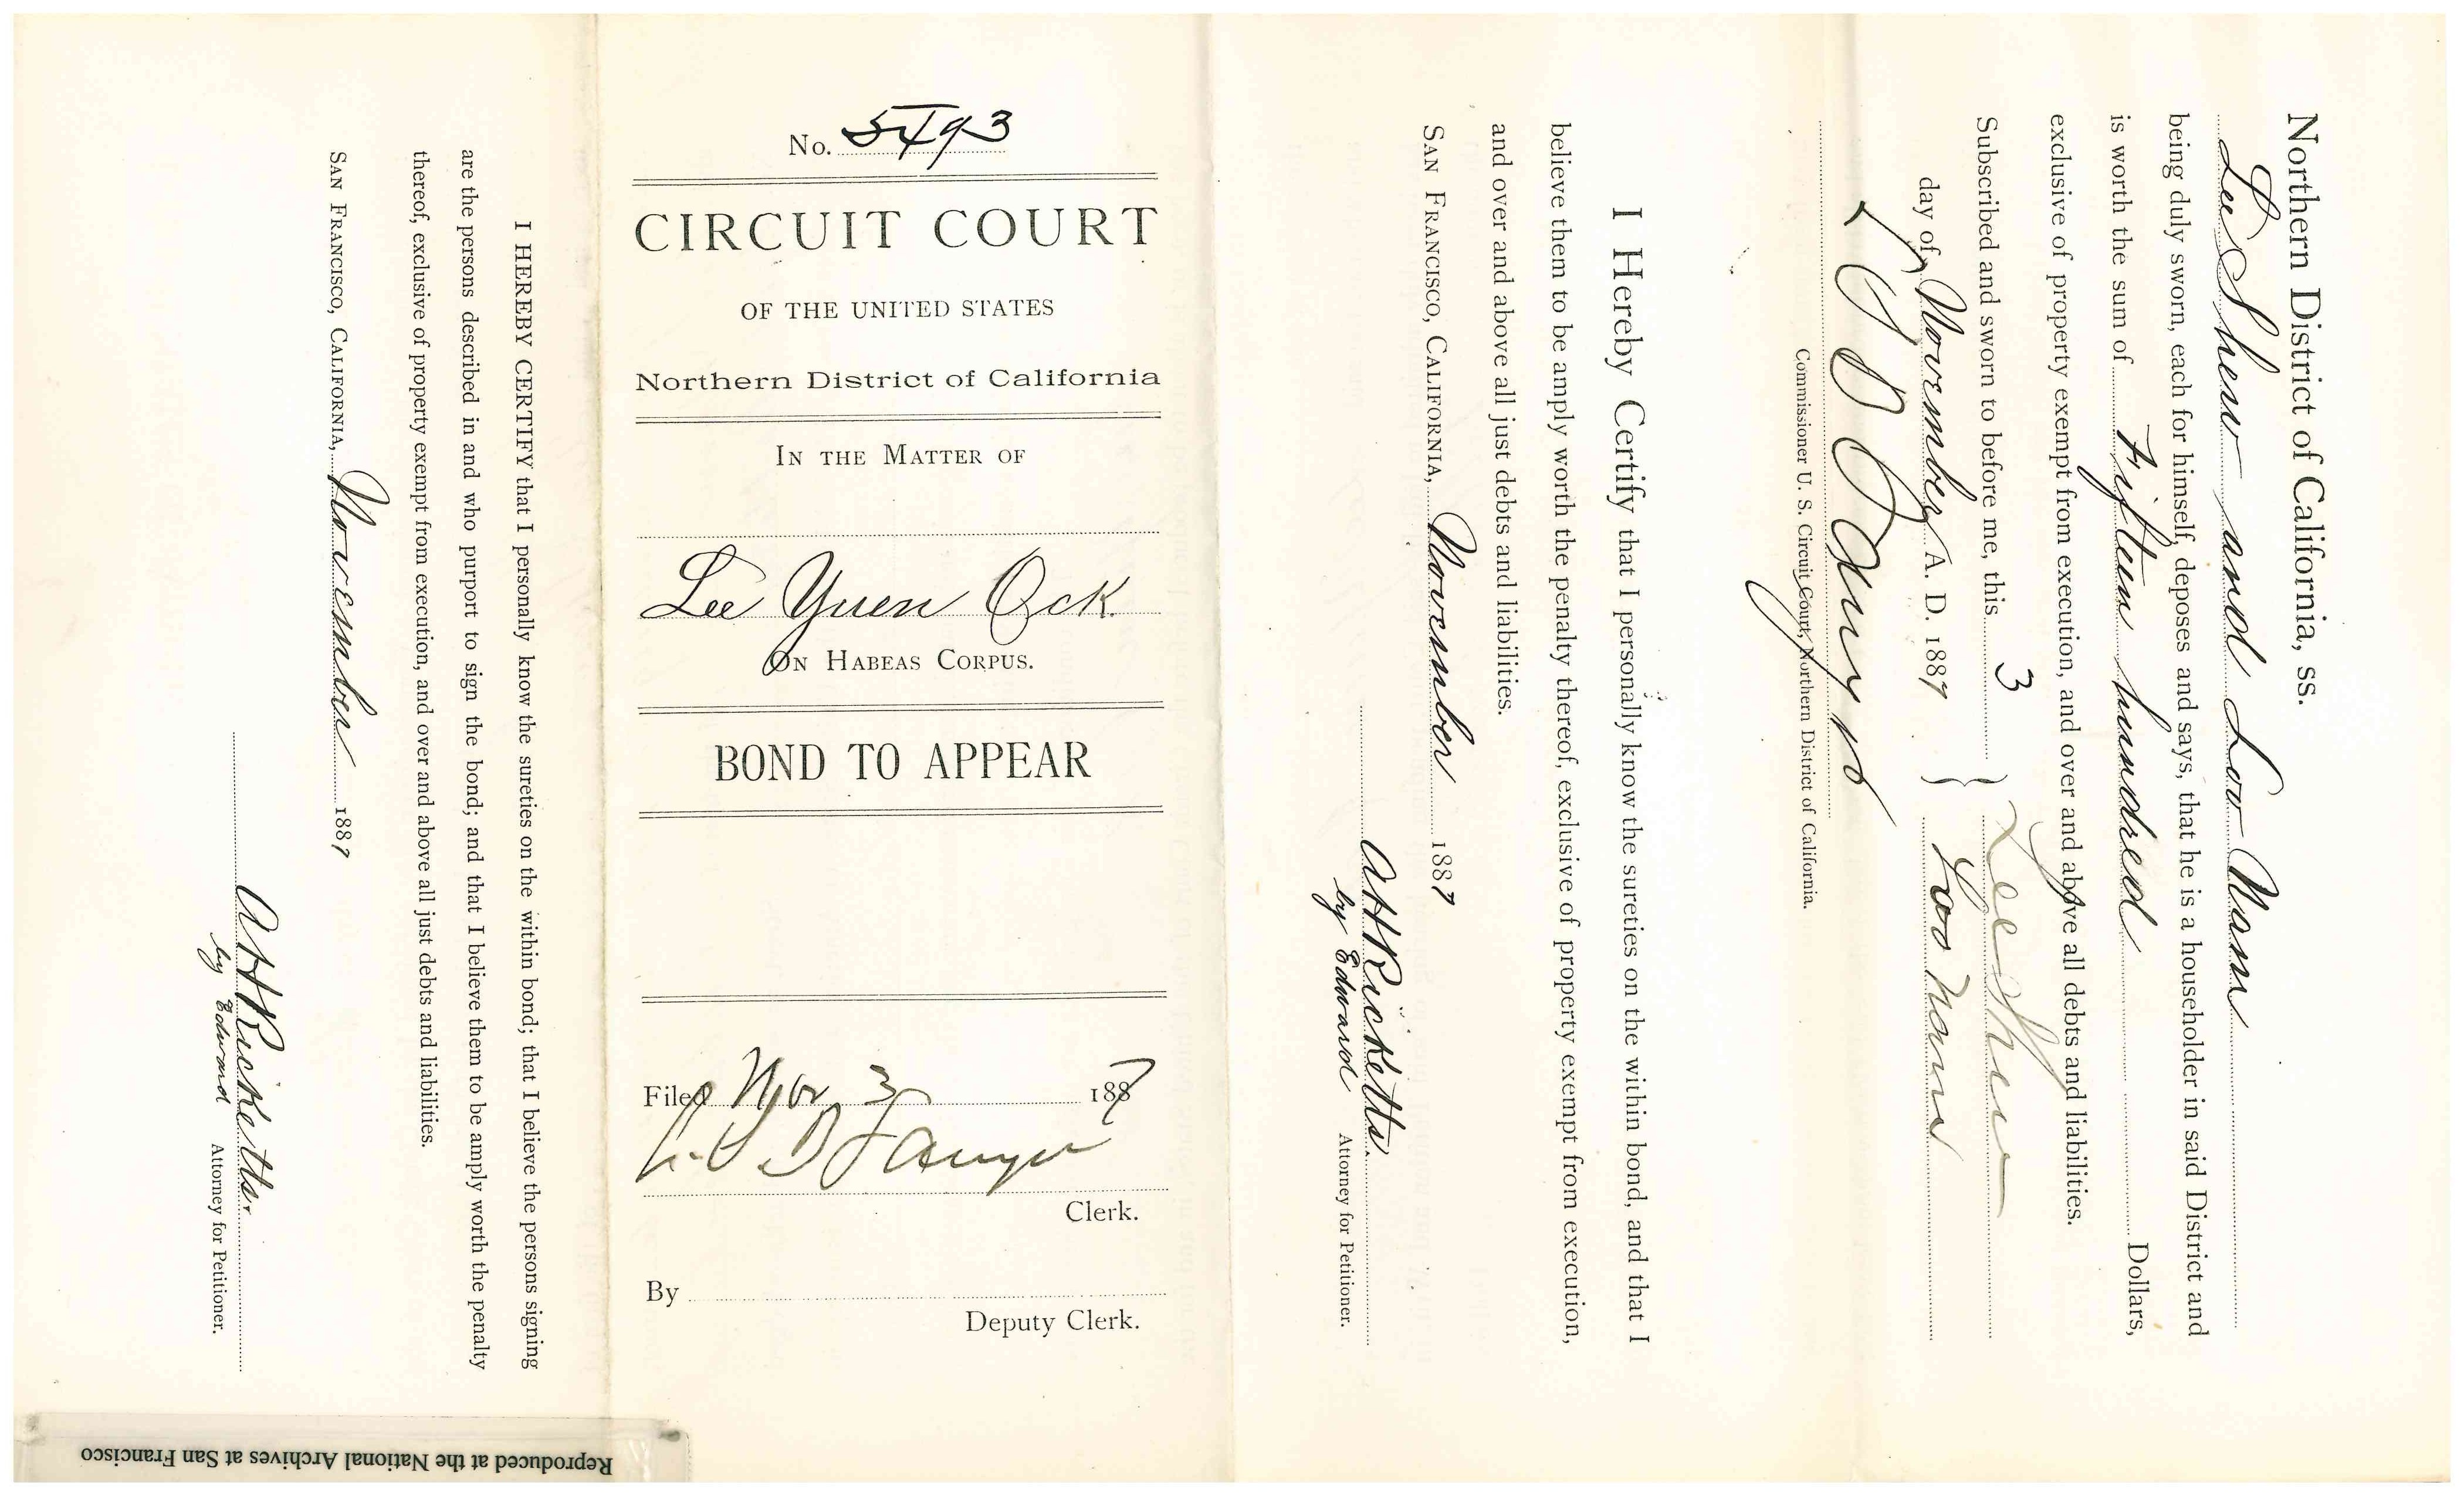 No. 5493
CIRCUIT COURT
OF THE UNITED STATES
Northern District of California
IN THE MATTER OF
Lee Yuen Ock.
ON HABEAS CORPUS.
BOND TO APPEAR
Filed Nov 3 1887
L. S. B. Sawyer
Clerk.
By
Deputy Clerk.
Northern District of California, ss.
Lee Shew and Loo Nam
being duly sworn, each for himself, deposes and says, that he is a householder in said District and
is worth the sum of Fifteen hundred Dollars,
exclusive of property exempt from execution, and over and above all debts and liabilities.
Subscribed and sworn to before me, this 3
day of November A. D. 1887
Lee Shew
Loo Nam
L S B Sawyer
Commissioner U. S. Circuit Court, Northern District of California.
I Hereby Certify that I personally know the sureties on the within bond, and that I
believe them to be amply worth the penalty thereof, exclusive of property exempt from execution,
and over and above all just debts and liabilities.
SAN FRANCISCO, CALIFORNIA, November 1887
A H Ricketts.
by Edward
Attorney for Petitioner.
I HEREBY CERTIFY that I personally know the sureties on the within bond; that I believe the persons signing
are the persons described in and who purport to sign the bond; and that I believe them to be amply worth the penalty
thereof, exclusive of property exempt from execution, and over and above all just debts and liabilities.
SAN FRANCISCO, CALIFORNIA, November 1887
A H Ricketts.
by Edward
Attorney for Petitioner.
Reproduced at the National Archives at San Francisco